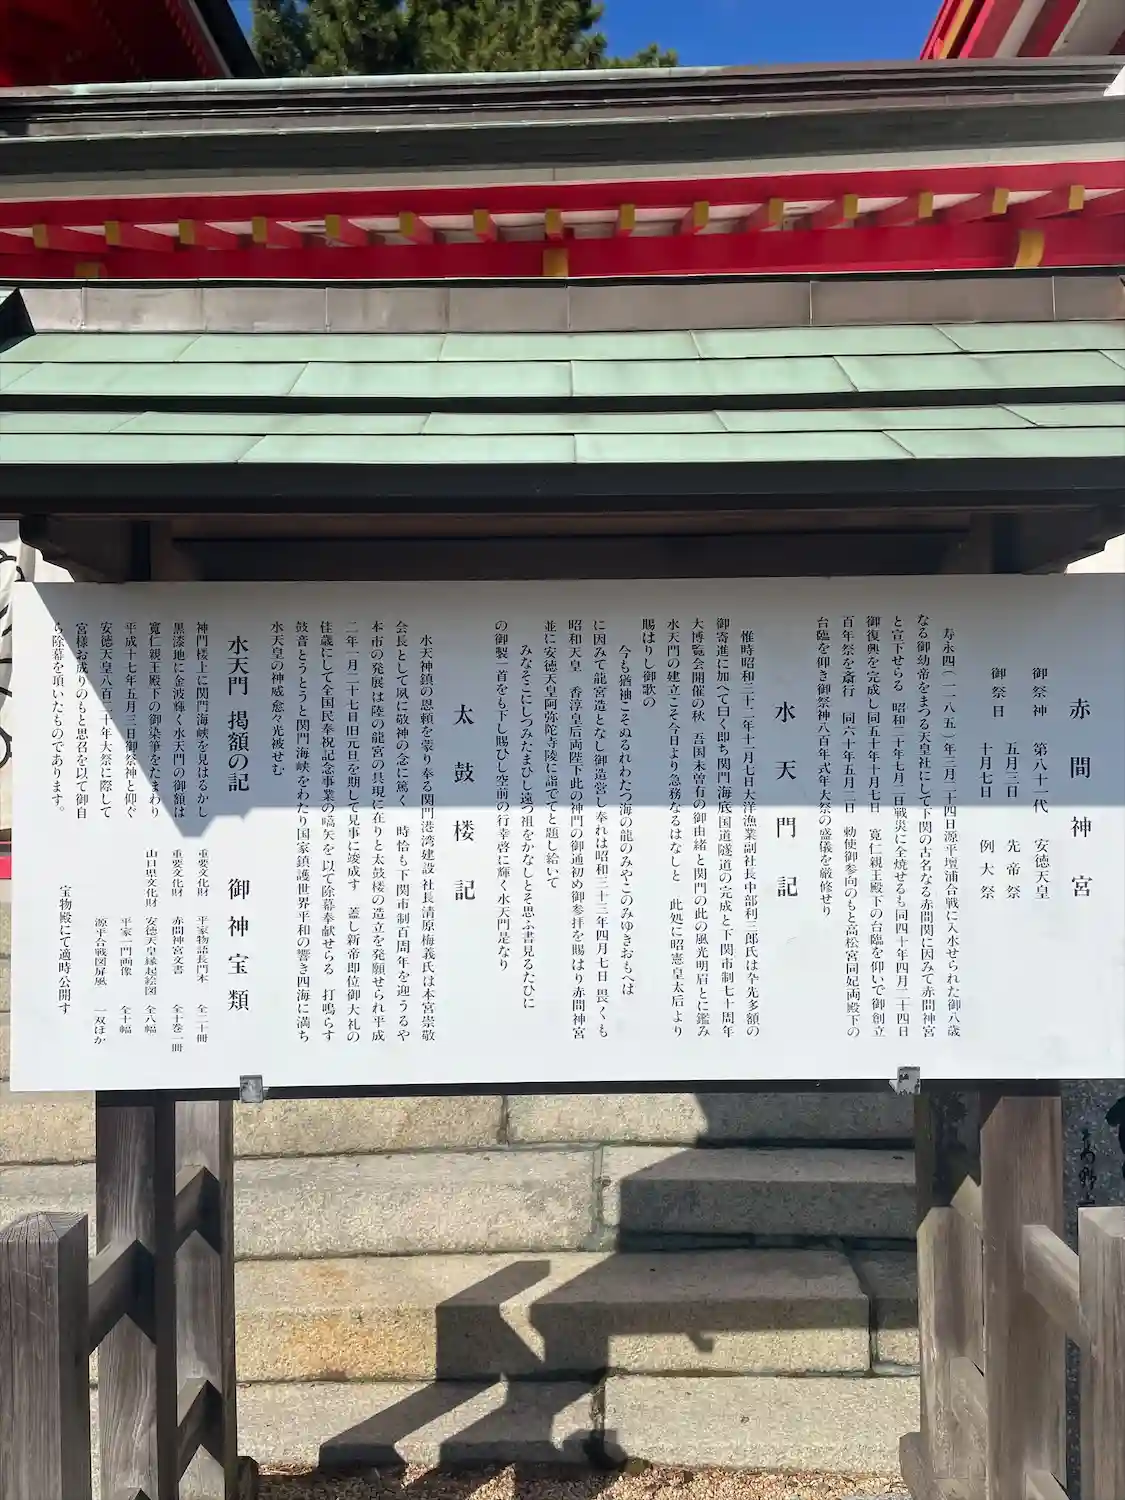 赤間神宮
御祭神 第八十一代 安徳天皇
御祭日 五月三日 先帝祭
十月七日 例大祭
寿永四(一一八五)年三月二十四日源平壇浦合戦に入水せられた御八歳
なる御幼帝をまつる天皇社にして下関の古名なる赤間関に因みて赤間神宮
と宣下せらる 昭和二十年七月二日戦災に全焼せるも同四十年四月二十四日
御復興を完成し同五十年十月七日 寛仁親王殿下の台臨を仰いで御創立
百年祭を斎行 同六十年五月二日 勅使御参向のもと高松宮同妃両殿下の
台臨を仰ぎ御祭神八百年式年大祭の盛儀を厳修せり
水天門記
惟時昭和三十二年十一月七日大洋漁業副社長中部利三郎氏は卒先多額の
御寄進に加へて曰く即ち関門海底国道隧道の完成と下関市制七十周年
大博覧会開催の秋 吾国未曽有の御由緒と関門の此の風光明眉とに鑑み
水天門の建立こそ今日より急務なるはなしと 此処に昭憲皇太后より
賜はりし御歌の
今も猶袖こそぬるれわたつ海の龍のみやこのみゆきおもへは
に因みて龍宮造となし御造営し奉れは昭和三十三年四月七日 畏くも
昭和天皇 香淳皇后両陛下此の神門の御通初め御参拝を賜はり赤間神宮
並に安徳天皇阿弥陀寺陵に詣でてと題し給いて
みなそこにしつみたまひし遠つ祖をかなしとそ思ふ書見るたひに
の御製一首をも下し賜ひし空前の行幸啓に輝く水天門是なり
太鼓楼記
水天神鎮の恩頼を蒙り奉る関門港湾建設 社長清原梅義氏は本宮崇敬
会長として夙に敬神の念に篤く 時恰も下関市制百周年を迎うるや
本市の発展は陸の龍宮の具現に在りと太鼓楼の造立を発願せられ平成
二年一月二十七日旧元旦を期して見事に竣成す 蓋し新帝即位御大礼の
佳歳にして全国民奉祝記念事業の嚆矢を以て除幕奉献せらる 打鳴らす
鼓音とうとうと関門海峡をわたり国家鎮護世界平和の響き四海に満ち
水天皇の神威愈々光被せむ
水天門 掲額の記
神門楼上に関門海峡を見はるかし
黒漆地に金波輝く水天門の御額は
寛仁親王殿下の御染筆をたまわり
平成十七年五月三日御祭神と仰ぐ
安徳天皇八百二十年大祭に際して
宮様お成りのもと思召を以て御自
ら除幕を頂いたものであります。
御神宝類
重要文化財 平家物語長門本 全二十冊
重要文化財 赤間神宮文書 全十巻一冊
山口県文化財 安徳天皇縁起絵図 全八幅
平家一門画像 全十幅
源平合戦図屏風 一双ほか
宝物殿にて適時公開す